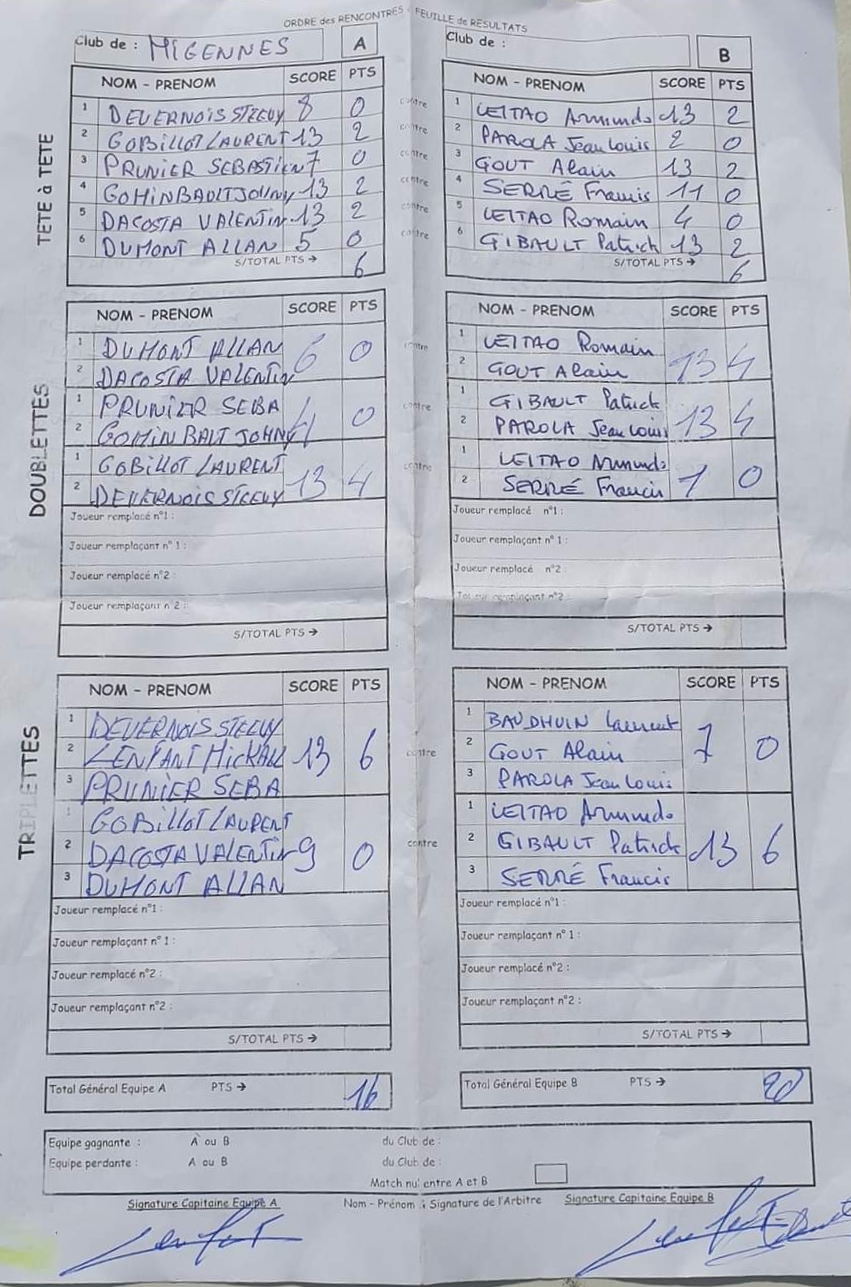 ORDRE des RENCONTRES - FEUILLE de RESULTATS
Club de : MIGENNES A
Club de : B
TETE à TETE
NOM - PRENOM SCORE PTS
1 DEVERNOIS STEEVY 8 0
2 GOBILLOT LAURENT 13 2
3 PRUNIER SEBASTIEN 7 0
4 GOMINBAULT JOHNY 13 2
5 DACOSTA VALENTIN 13 2
6 DUMONT ALLAN 5 0
S/TOTAL PTS → 6
contre
contre
contre
contre
contre
contre
NOM - PRENOM SCORE PTS
1 LEITAO Armundo 13 2
2 PAROLA Jean Louis 2 0
3 GOUT Alain 13 2
4 SERRÉ Francis 11 0
5 LEITAO Romain 4 0
6 GIBAULT Patrick 13 2
S/TOTAL PTS → 6
DOUBLETTES
NOM - PRENOM SCORE PTS
1 DUMONT ALLAN 6 0
2 DACOSTA VALENTIN
1 PRUNIER SEBA 4 0
2 GOMINBALT JOHNY
1 GOBILLOT LAURENT 13 4
2 DEVERNOIS STEEVY
Joueur remplacé n°1 :
Joueur remplaçant n° 1 :
Joueur remplacé n°2 :
Joueur remplaçant n°2 :
S/TOTAL PTS →
contre
contre
contre
NOM - PRENOM SCORE PTS
1 LEITAO Romain
2 GOUT Alain 13 4
1 GIBAULT Patrick
2 PAROLA Jean Louis 13 4
1 LEITAO Armundo
2 SERRÉ Francis 7 0
Joueur remplacé n°1 :
Joueur remplaçant n° 1 :
Joueur remplacé n°2 :
Joueur remplaçant n°2 :
S/TOTAL PTS →
TRIPLETTES
NOM - PRENOM SCORE PTS
1 DEVERNOIS STEEVY
2 LENFANT MICKAEL 13 6
3 PRUNIER SEBA
1 GOBILLOT LAURENT
2 DACOSTA VALENTIN 9 0
3 DUMONT ALLAN
Joueur remplacé n°1 :
Joueur remplaçant n° 1 :
Joueur remplacé n°2 :
Joueur remplaçant n°2 :
S/TOTAL PTS →
contre
contre
NOM - PRENOM SCORE PTS
1 BAUDHUIN Laurent
2 GOUT Alain 7 0
3 PAROLA Jean Louis
1 LEITAO Armundo
2 GIBAULT Patrick 13 6
3 SERRÉ Francis
Joueur remplacé n°1 :
Joueur remplaçant n° 1 :
Joueur remplacé n°2 :
Joueur remplaçant n°2 :
S/TOTAL PTS →
Total Général Equipe A PTS → 16
Total Général Equipe B PTS → 20
Equipe gagnante : A ou B du Club de :
Equipe perdante : A ou B du Club de :
Match nul entre A et B
Signature Capitaine Equipe A
Nom - Prénom & Signature de l'Arbitre
Signature Capitaine Equipe B